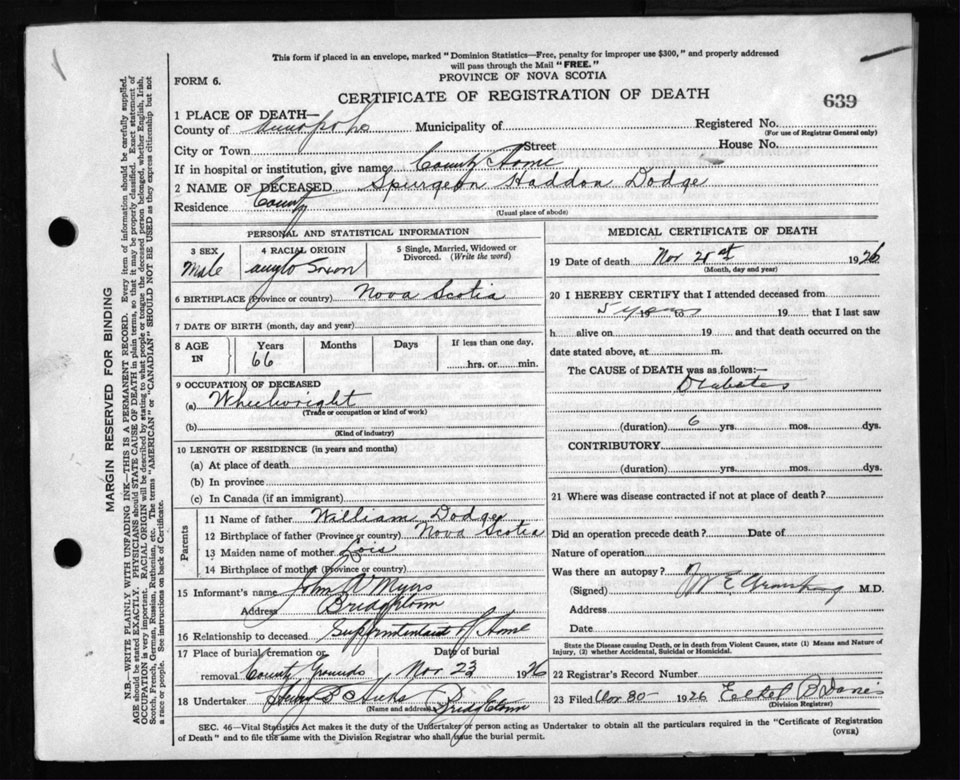 This form if placed in an envelope, marked "Dominion Statistics—Free, penalty for improper use $300," and properly addressed
will pass through the Mail "FREE."
PROVINCE OF NOVA SCOTIA
FORM 6.
CERTIFICATE OF REGISTRATION OF DEATH
639
1 PLACE OF DEATH—
County of Annapolis Municipality of Registered No.
(For use of Registrar General only)
City or Town Street House No.
If in hospital or institution, give name County Home
2 NAME OF DECEASED Spurgeon Haddon Dodge
Residence County
(Usual place of abode)
PERSONAL AND STATISTICAL INFORMATION
3 SEX 4 RACIAL ORIGIN 5 Single, Married, Widowed or
Divorced. (Write the word)
Male anglo Saxon
6 BIRTHPLACE (Province or country) Nova Scotia
7 DATE OF BIRTH (month, day and year)
8 AGE IN Years Months Days If less than one day,
66 hrs. or min.
9 OCCUPATION OF DECEASED
(a) Wheelwright
(Trade or occupation or kind of work)
(b)
(Kind of industry)
10 LENGTH OF RESIDENCE (in years and months)
(a) At place of death
(b) In province
(c) In Canada (if an immigrant)
Parents
11 Name of father William Dodge
12 Birthplace of father (Province or country) Nova Scotia
13 Maiden name of mother Lois
14 Birthplace of mother (Province or country)
15 Informant's name John Myers
Address Bridgetown
16 Relationship to deceased Superintendent of Home
17 Place of burial, cremation or Date of burial
removal County Grounds Nov 23 1926
18 Undertaker B Hicks Bridgetown
(Name and address)
MEDICAL CERTIFICATE OF DEATH
19 Date of death Nov 21st 1926
(Month, day and year)
20 I HEREBY CERTIFY that I attended deceased from
5 years 19 to 19 that I last saw
h alive on 19 and that death occurred on the
date stated above, at m.
The CAUSE of DEATH was as follows:—
Diabetes
(duration) 6 yrs. mos. dys.
CONTRIBUTORY.
(duration) yrs. mos. dys.
21 Where was disease contracted if not at place of death?
Did an operation precede death? Date of
Nature of operation
Was there an autopsy?
(Signed) M.D.
Address
Date
State the Disease causing Death, or in death from Violent Causes, state (1) Means and Nature of
Injury, (2) whether Accidental, Suicidal or Homicidal.
22 Registrar's Record Number
23 Filed Nov 30- 1926 Ethel B Davis
(Division Registrar)
SEC. 46—Vital Statistics Act makes it the duty of the Undertaker or person acting as Undertaker to obtain all the particulars required in the "Certificate of Registration
of Death" and to file the same with the Division Registrar who shall issue the burial permit.
(OVER)
MARGIN RESERVED FOR BINDING
N.B.—WRITE PLAINLY WITH UNFADING INK—THIS IS A PERMANENT RECORD. Every item of information should be carefully supplied.
AGE should be stated EXACTLY. PHYSICIANS should STATE CAUSE OF DEATH in plain terms, so that it may be properly classified. Exact statement of
OCCUPATION is very important. RACIAL ORIGIN will be described by stating to what people or tongue the deceased person belonged, whether English, Irish,
Scotch, French, German, Russian, Ruthenian, etc. The terms "AMERICAN" or "CANADIAN" SHOULD NOT BE USED as they express citizenship but not
a race or people. See instructions on back of Certificate.